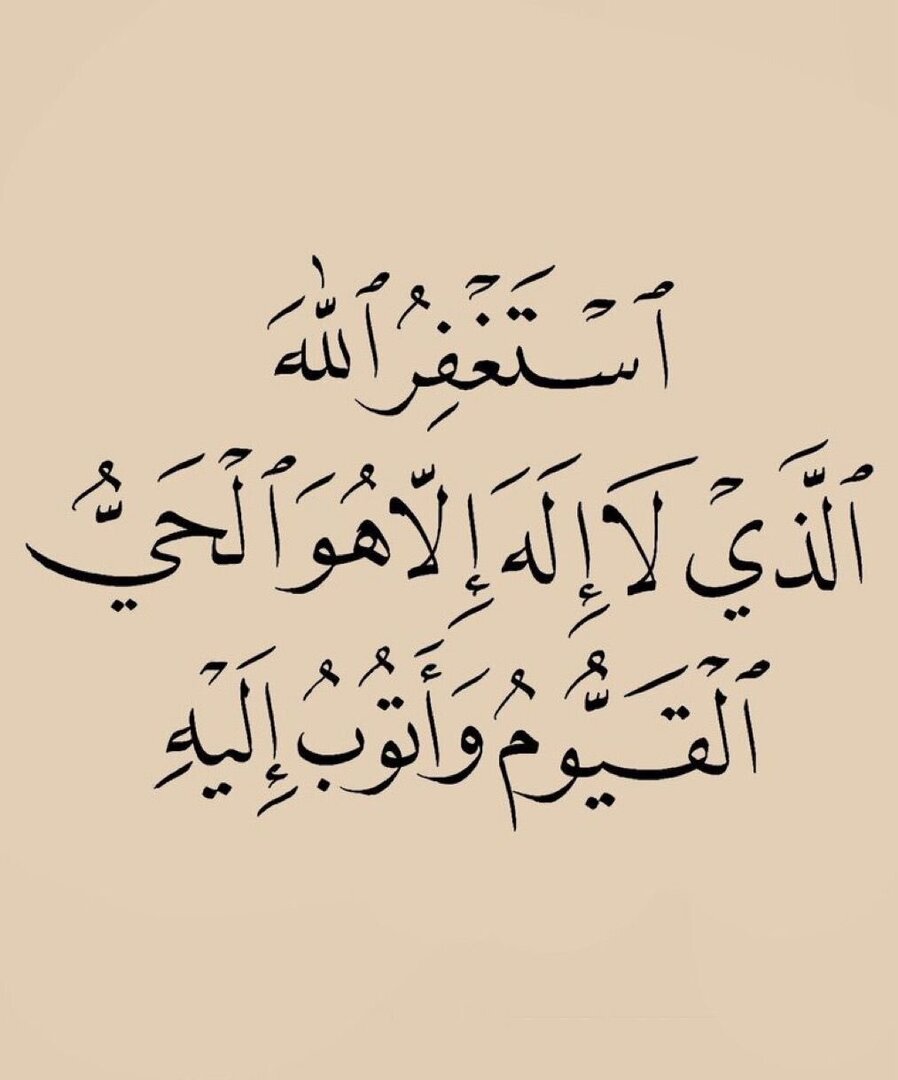 ٱسْتَغْفِرُ ٱللّٰهَ
ٱلَّذِيْ لَا إِلَهَ إِلّا هُوَ ٱلْحَيُّ
ٱلْقَيُّومُ وَأَتُوبُ إِلَيْهِ